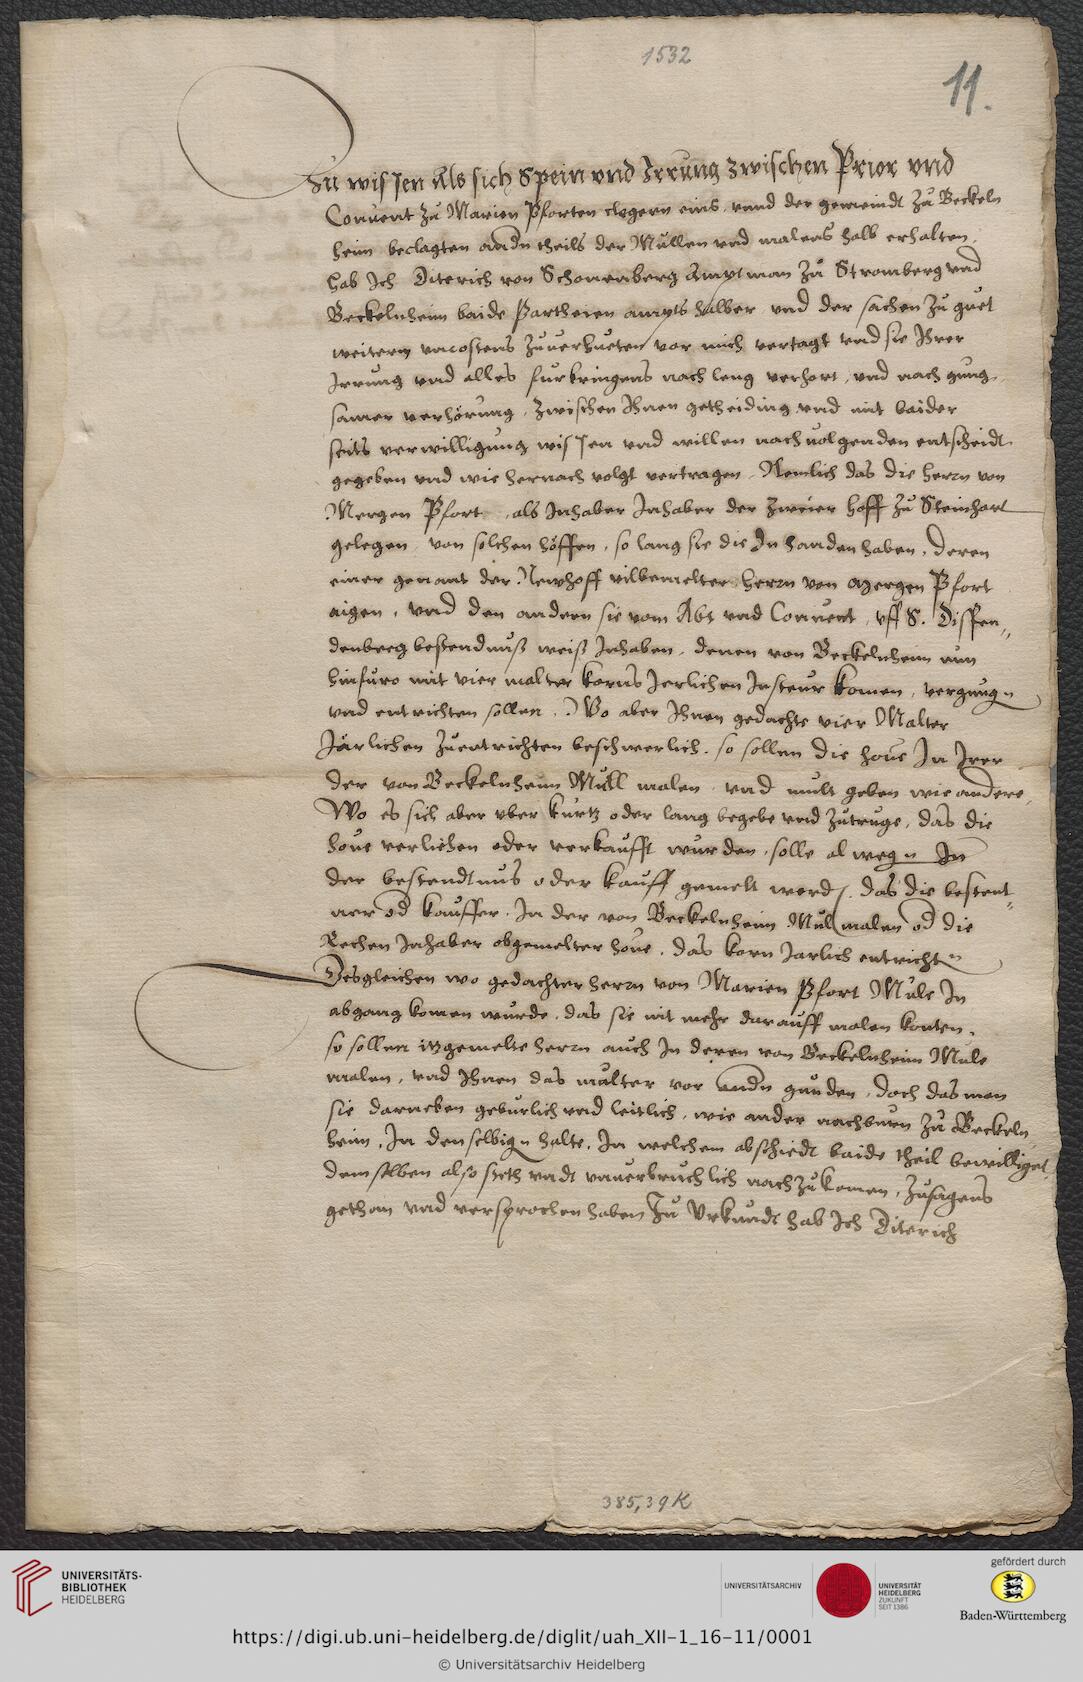 1532
11.
Zu wissen Als sich Spein vnd Irrung zwischen Prior vnd
Conuent zu Marien Pforten clegern eins, vnnd der gemeindt zu Beckeln
heim beclagten andn theils der Mullen vnd malens halb erhalten,
hab Ich Diterich von Schonenberg Amptman zu Stromberg vnd
Beckelnheim baide Partheien ampts halber vnd der sachen zu guet
weiterm vncostens zuuerhueten vor mich vertagt vnd sie Ihrer
Irrung vnd alles furbringens nach leng verhort, vnd nach gung
samer verhörung, zwischen Ihnen getheiding vnd mit baider
seits verwilligung wissen vnd willen nachuolgenden entscheidt
gegeben vnd wie hernach volgt vertragen, Nemlich das die herrn von
Mergen Pfort, als Inhaber Inhaber der zweier hoff zu Steinhart
gelegen, von solchen höffen, so lang sie die In handen haben, deren
einer genant der Newhoff vilbemelter herrn von Mergen Pfort
aigen, vnd den andern sie vom Abt vnd Conuent, vff S. Dissen„
denberg bestendnuß weiß Inhaben, denen von Beckelnheim nun
hinfuro mit vier malter korns Jerlichen Insteur komen, vergnugn
vnd entrichten sollen. Wo aber Ihnen gedachte vier Malter
Järlichen zuentrichten beschwerlich, so sollen die houe In Irer
der von Beckelnheim Mull malen, vnd mult geben wie andere,
Wo es sich aber vber kurtz oder lang begebe vnd zutruge, das die
houe verlichen oder verkaufft wurden, solle alwegn In
der bestendtnus oder kauff gemelt werd, das die bestent„
ner od kauffer, In der von Beckelnheim Mul malen od die
Inhaber obgemelter houe, das korn Jarlich entrichtn
Desgleichen wo gedachter herrn von Marien Pfort Mule In
abgang komen wurde, das sie nit mehr darauff malen konten,
so sollen itzgemelte herrn auch In deren von Beckelnheim Mule
malen, vnd Ihnen das multer vor andn gunden, doch das man
sie darneben geburlich vnd leitlich, wie ander nachburn zu Beckeln
heim, In denselbign halte, In welchem abschiedt baide theil bewilliget
demselben also steth vndt vnuerbruchlich nachzukomen, zusagens
gethan vnd versprochen haben Zu Vrkundt hab Ich Diterich
385,39K
UNIVERSITÄTS-
BIBLIOTHEK
HEIDELBERG
UNIVERSITÄTSARCHIV
UNIVERSITÄT
HEIDELBERG
ZUKUNFT
SEIT 1386
gefördert durch
Baden-Württemberg
https://digi.ub.uni-heidelberg.de/diglit/uah_XII-1_16-11/0001
© Universitätsarchiv Heidelberg